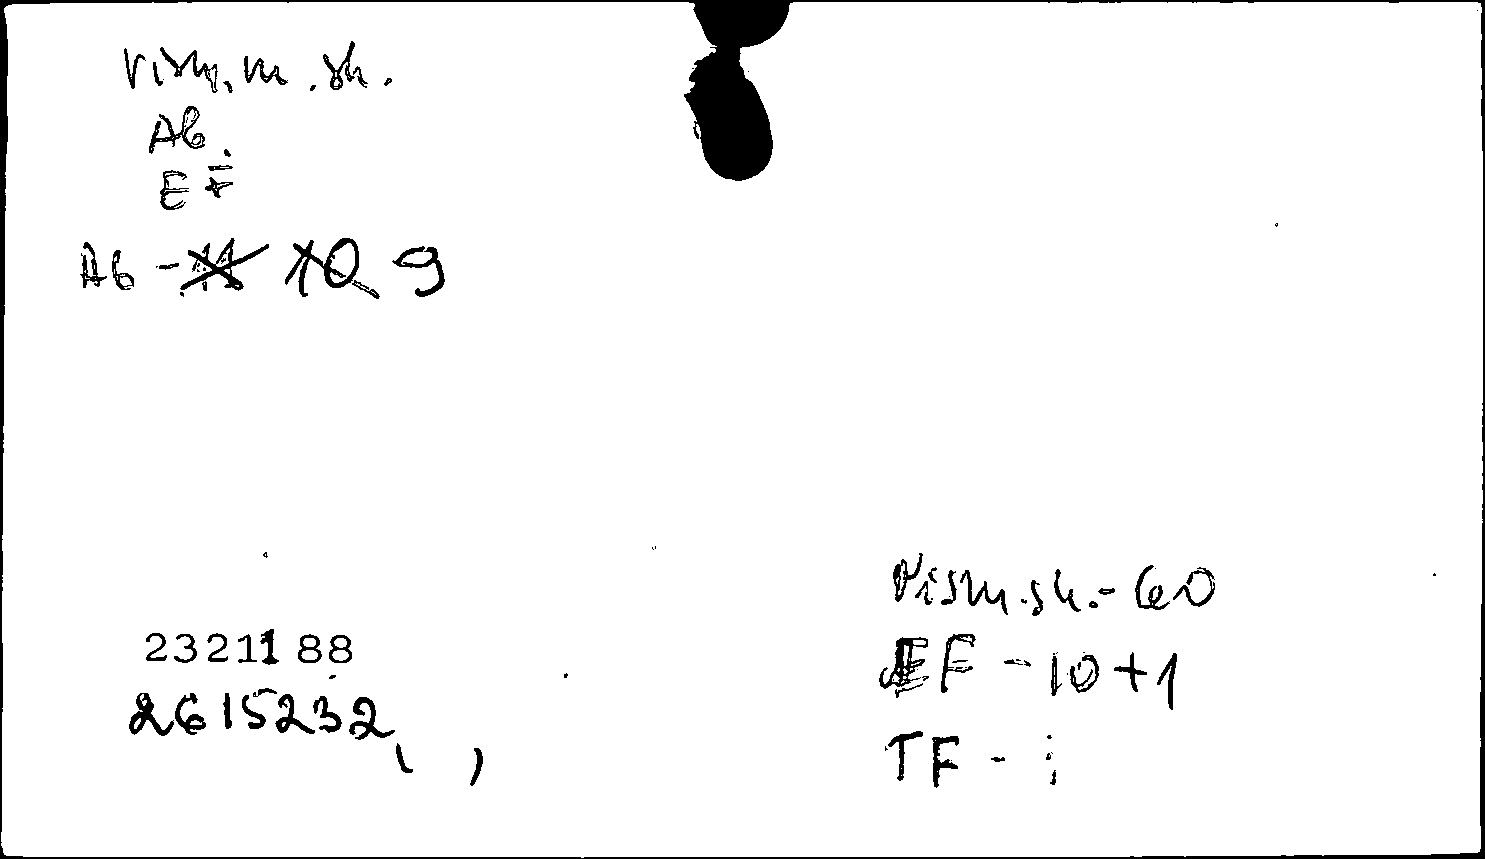 Vism. m. sk.
Ab.
EF
Ab - 11 10 9
2321188
2615232
Vism.sk.- 60
EF - 10+1
TF - ;